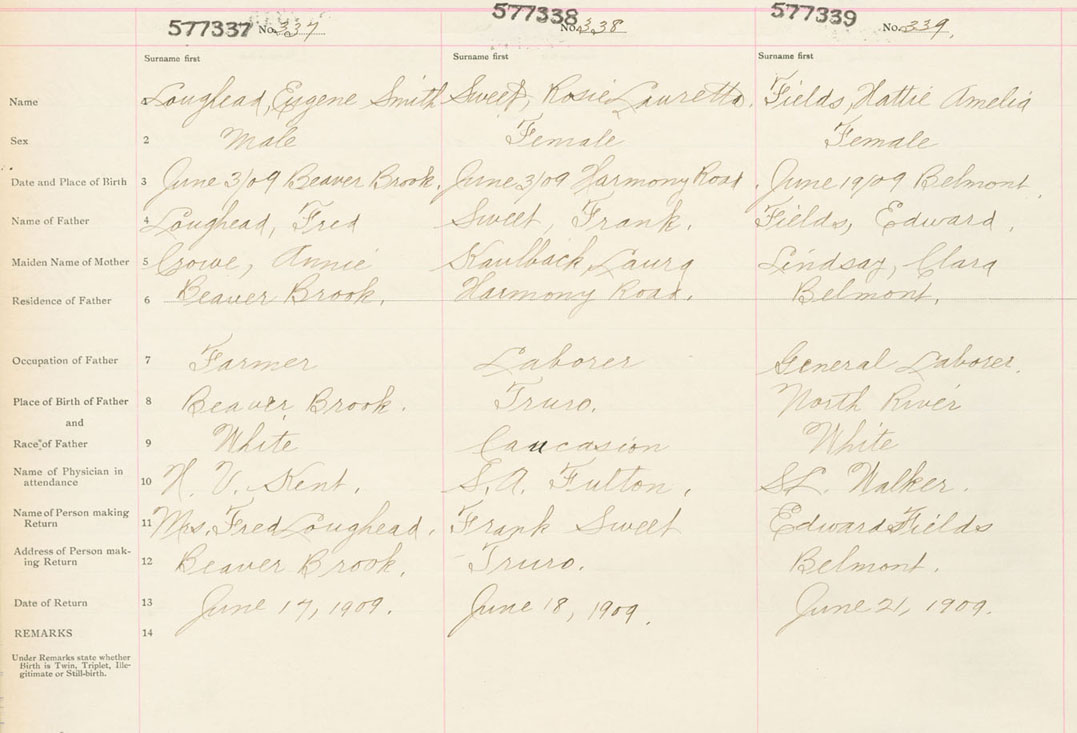 577337 No. 337 577338 No. 338 577339 No. 339.
Surname first Surname first Surname first
Name 1 Loughead, Eugene Smith Sweet, Rosie Lauretta. Fields, Hattie Amelia
Sex 2 Male Female Female
Date and Place of Birth 3 June 3/09 Beaver Brook. June 3/09 Harmony Road. June 19/09 Belmont.
Name of Father 4 Loughead, Fred Sweet, Frank. Fields, Edward.
Maiden Name of Mother 5 Crowe, Annie Kaulback, Laura Lindsay, Clara
Residence of Father 6 Beaver Brook. Harmony Road. Belmont.
Occupation of Father 7 Farmer Laborer General Laborer.
Place of Birth of Father 8 Beaver Brook. Truro. North River
and
Race of Father 9 White Caucasion White
Name of Physician in
attendance 10 H. V. Kent. S. A. Fulton. S.L. Walker.
Name of Person making
Return 11 Mrs. Fred Loughead. Frank Sweet Edward Fields
Address of Person mak-
ing Return 12 Beaver Brook. Truro. Belmont.
Date of Return 13 June 17, 1909. June 18, 1909. June 21, 1909.
REMARKS 14
Under Remarks state whether
Birth is Twin, Triplet, Ille-
gitimate or Still-birth.